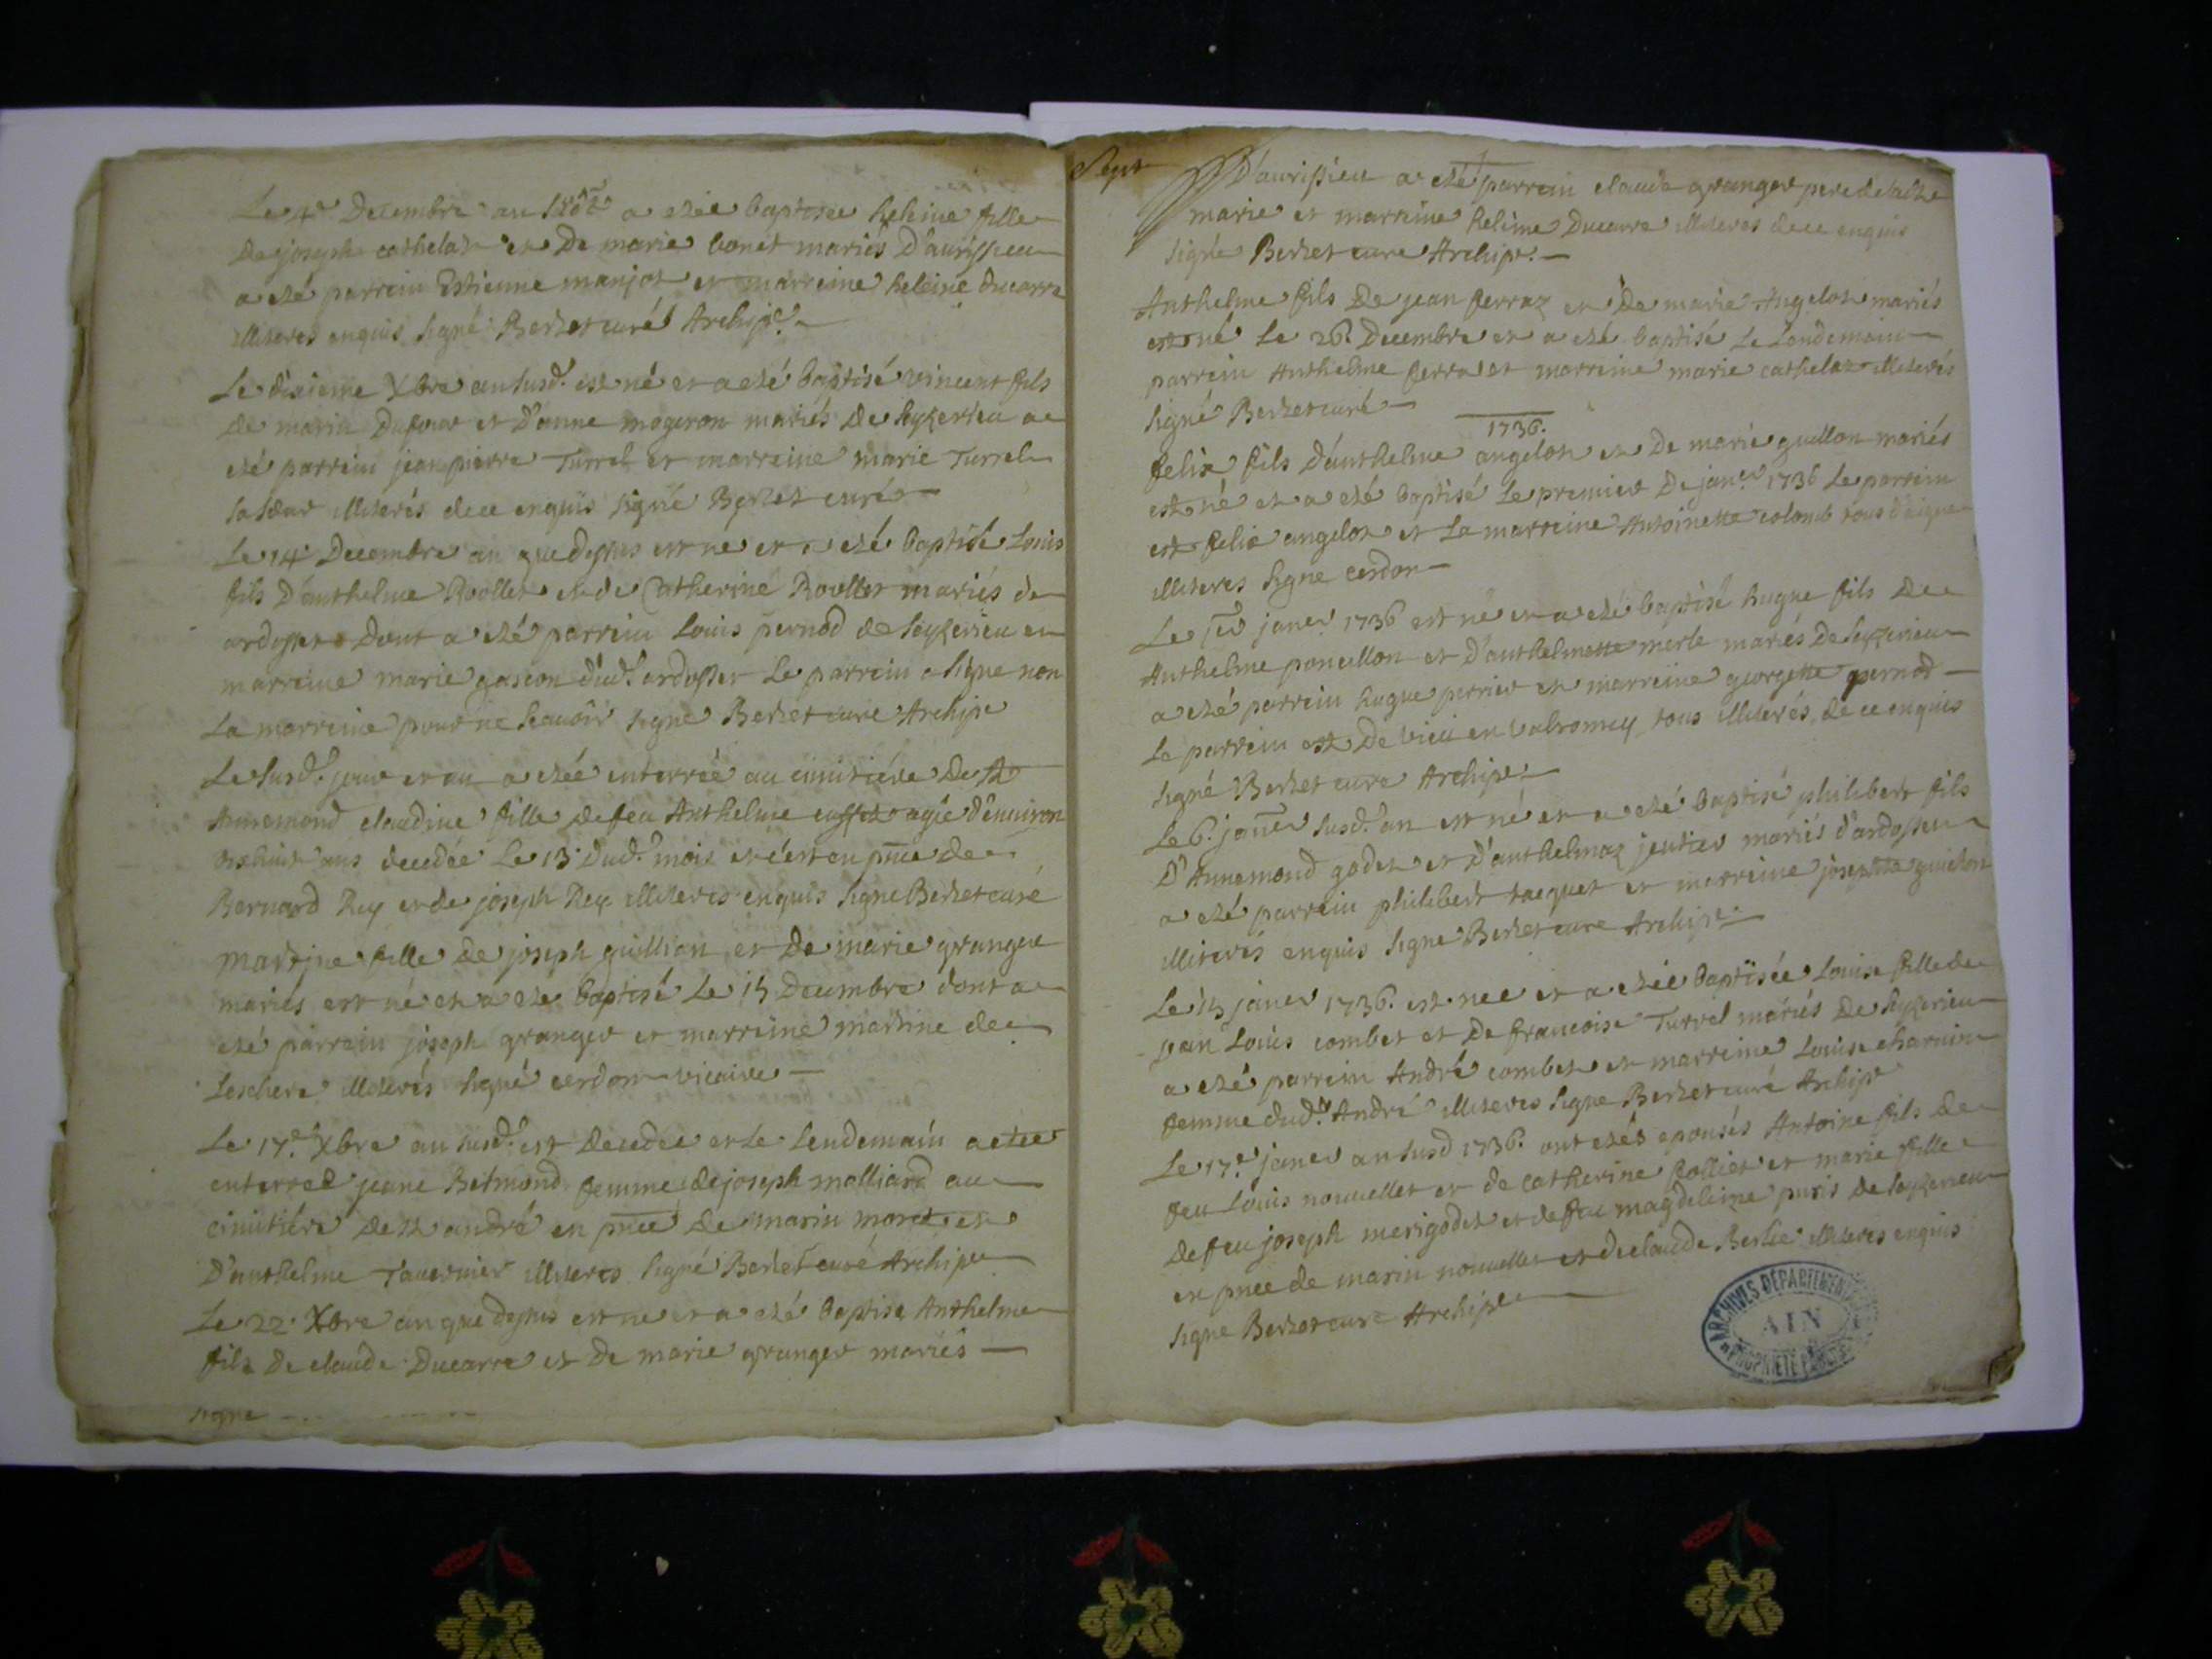 Le 4e Decembre an susd. a etée baptisée heleine fille
De joseph cathelaz et De marie bonet mariés D'aurissieu
a eté parrein Estienne manjot et marreine heleine ducarre
illiteres enquis signé Berzet curé Archipr.
Le dixieme Xbre an susd. est né et a eté baptisé vincent fils
de marin Dufour et D'anne mogeron mariés de seyzerieu a
eté parrein jean pierre Turrel et marreine marie Turrel
sa sœur illiterés de ce enquis signé Berzet curé
Le 14 Decembre an que dessus est ne et a eté baptisé Louis
fils D'anthelme Roollet et de Catherine Roollet mariés de
ardosset Dont a eté parrein Louis pernod de seyzerieu et
marreine marie gascon dud. ardosset Le parrein a signe non
La marreine pour ne scavoir signe Berzet cure Archipr
Le susd. jour et an a etée enterrée au cimitiére de st
Annemond claudine fille de feu Anthelme agée d'environ
dixhuit ans decedée Le 13 dud. mois et c'est en pnce de
Bernard Rey et de joseph Rey illiteres enquis signe Berzet curé
Martine fille de joseph guillion et De marie granger
mariés est né et a eté baptisé Le 15 Decembre dont a
eté parrein joseph granger et marreine martine de
Leschere illiterés signé cerdon vicaire
Le 17e Xbre an susd. est decedee et le lendemain a etee
enterree jeane Betmond femme de joseph malliard au
cimitiére de st andré en pnce de marin moret et
D'anthelme Tavernier illiteres signé Berzet curé Archipr
Le 22 Xbre an que dessus est ne et a eté baptise Anthelme
fils De claude Ducarre et De marie granger mariés
signe
Sept D'aurissieu a eté parrein claude granger pere de lad.
marie et marreine heleine Ducarre illiteres de ce enquis
signé Berzet cure Archipr.
Anthelme fils De jean ferraz et De marie Angelot mariés
est né Le 26. Decembre et a eté baptisé Le Lendemain
parrein Anthelme ferraz et marreine marie cathelaz illiterés
signé Berzet curé
1736.
felix fils d'anthelme angelot et De marie guillon mariés
est né et a eté baptisé Le premier De janer 1736 Le parrein
est felix angelot et La marreine Antoinette colomb tous d'aigne
illiteres signe cerdon
Le 1er janer 1736 est né et a eté baptisé hugue fils De
Anthelme poncillon et D'anthelmette merle mariés De seyzerieu
a eté parrein hugue perrier et marreine georgette pernod
Le parrein est De vieu en valromey tous illiterés de ce enquis
signé Berzet cure Archipr.
Le 6. janer susd. an est né et a eté baptisé philibert fils
D'Annemond godet et D'anthelmaz jentier mariés d'ardosset
a eté parrein philibert taquet et marreine josephte guichon
illiterés enquis signe Berzet cure Archipr.
Le 15 janer 1736. est nee et a etée baptisée Louise fille de
jean Louis combet et De francoise Turrel mariés De seyzerieu
a eté parrein André combet et marreine Louise charvin
femme dud. André illiteres signe Berzet curé Archipr
Le 17e janer an susd 1736. ont etés epousés Antoine fils de
feu Louis nouvellet et de catherine folliet et marie fille
De feu joseph merigodet et de feu magdeleine puris De seyzerieu
en pnce de marin nouvellet et de claude Berlie illiteres enquis
signe Berzet cure Archipr
ARCHIVES DÉPARTEMENTALES
AIN
PROPRIÉTÉ PUBLIQUE